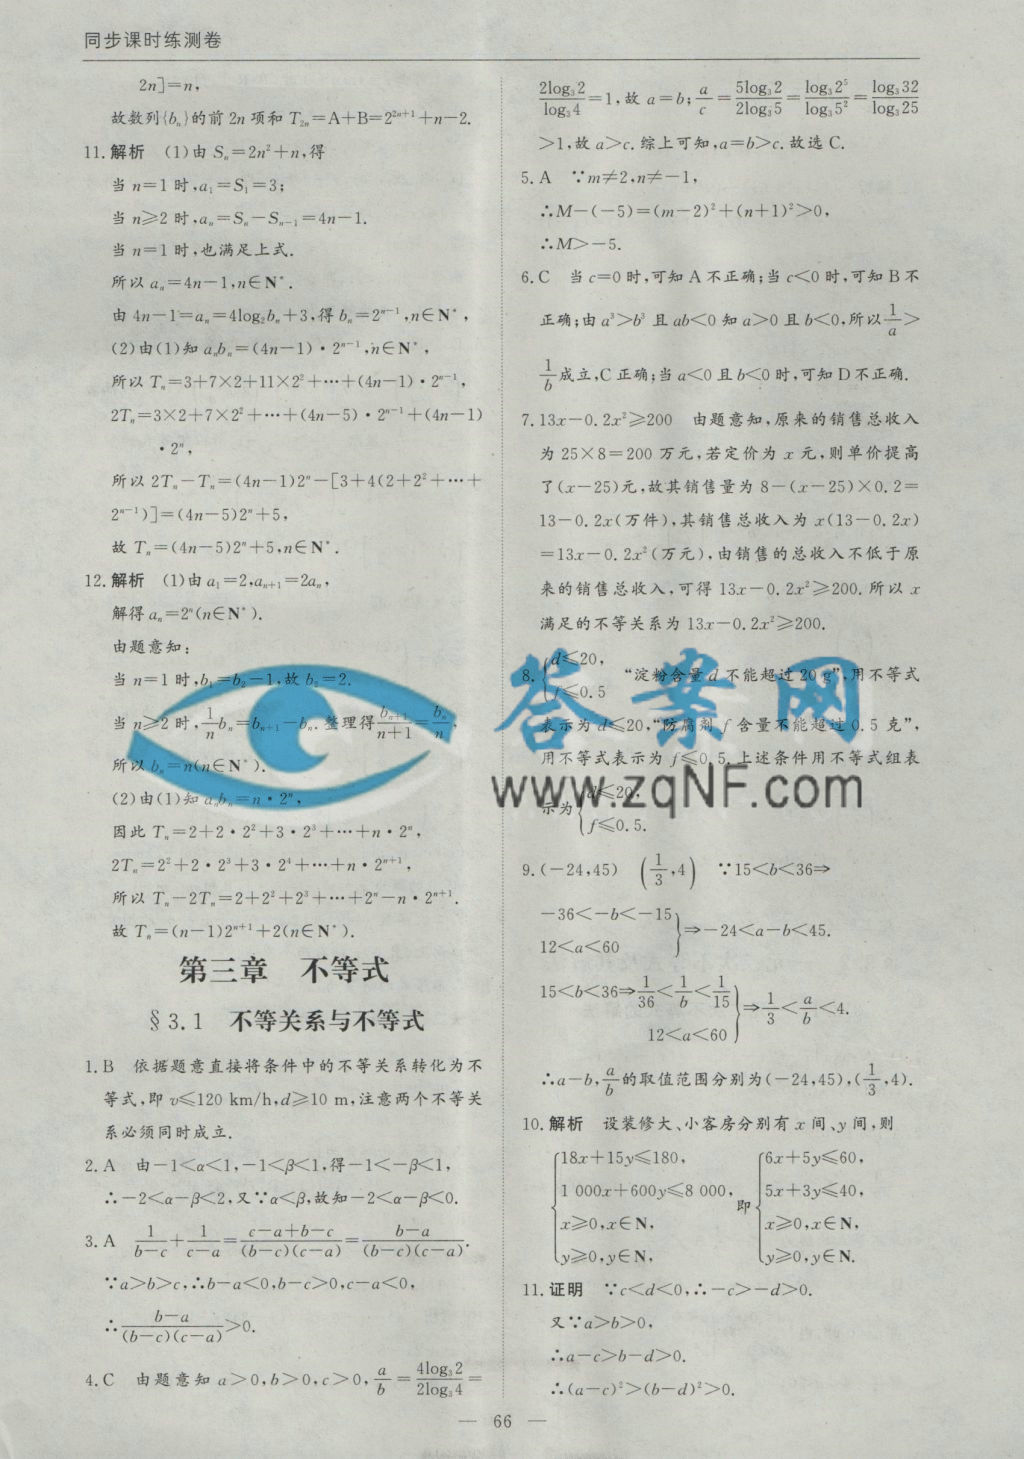 同步课时练测卷
2n]=n,
故数列{bₙ}的前 2n 项和 T₂ₙ=A+B=2²ⁿ⁺¹+n-2.
11. 解析 (1)由 Sₙ=2n²+n,得
当 n=1 时,a₁=S₁=3;
当 n≥2 时,aₙ=Sₙ-Sₙ₋₁=4n-1.
当 n=1 时,也满足上式.
所以 aₙ=4n-1,n∈N*.
由 4n-1=aₙ=4log₂bₙ+3,得 bₙ=2ⁿ⁻¹,n∈N*,
(2)由(1)知 aₙbₙ=(4n-1)·2ⁿ⁻¹,n∈N*,
所以 Tₙ=3+7×2+11×2²+⋯+(4n-1)·2ⁿ⁻¹,
2Tₙ=3×2+7×2²+⋯+(4n-5)·2ⁿ⁻¹+(4n-1)
·2ⁿ,
所以 2Tₙ-Tₙ=(4n-1)2ⁿ-[3+4(2+2²+⋯+
2ⁿ⁻¹)]=(4n-5)2ⁿ+5,
故 Tₙ=(4n-5)2ⁿ+5,n∈N*.
12. 解析 (1)由 a₁=2,aₙ₊₁=2aₙ,
解得 aₙ=2ⁿ(n∈N*).
由题意知:
当 n=1 时,b₁=b₂-1,故 b₂=2.
当 n≥2 时,1/n bₙ=bₙ₊₁-bₙ.整理得 bₙ₊₁/(n+1)=bₙ/n,
所以 bₙ=n(n∈N*).
(2)由(1)知 aₙbₙ=n·2ⁿ,
因此 Tₙ=2+2·2²+3·2³+⋯+n·2ⁿ,
2Tₙ=2²+2·2³+3·2⁴+⋯+n·2ⁿ⁺¹,
所以 Tₙ-2Tₙ=2+2²+2³+⋯+2ⁿ-n·2ⁿ⁺¹.
故 Tₙ=(n-1)2ⁿ⁺¹+2(n∈N*).
第三章 不等式
§3.1 不等关系与不等式
1. B 依据题意直接将条件中的不等关系转化为不
等式,即 v≤120 km/h,d≥10 m,注意两个不等关
系必须同时成立.
2. A 由-1<α<1,-1<β<1,得-1<-β<1,
∴-2<α-β<2,又∵α<β,故知-2<α-β<0.
3. A 1/(b-c)+1/(c-a)=(c-a+b-c)/((b-c)(c-a))=(b-a)/((b-c)(c-a)).
∵a>b>c,∴b-a<0,b-c>0,c-a<0,
∴(b-a)/((b-c)(c-a))>0.
4. C 由题意知 a>0,b>0,c>0,a/b=4log₃2/2log₃4=
2log₃2/log₃4=1,故 a=b;a/c=5log₃2/2log₃5=log₃2⁵/log₃5²=log₃32/log₃25
>1,故 a>c.综上可知,a=b>c.故选 C.
5. A ∵m≠2,n≠-1,
∴M-(-5)=(m-2)²+(n+1)²>0,
∴M>-5.
6. C 当 c=0 时,可知 A 不正确;当 c<0 时,可知 B 不
正确;由 a³>b³ 且 ab<0 知 a>0 且 b<0,所以1/a>
1/b成立,C 正确;当 a<0 且 b<0 时,可知 D 不正确.
7. 13x-0.2x²≥200 由题意知,原来的销售总收入
为 25×8=200 万元,若定价为 x 元,则单价提高
了(x-25)元,故其销售量为 8-(x-25)×0.2=
13-0.2x(万件),其销售总收入为 x(13-0.2x)
=13x-0.2x²(万元),由销售的总收入不低于原
来的销售总收入,可得 13x-0.2x²≥200.所以 x
满足的不等关系为 13x-0.2x²≥200.
8. {d≤20, f≤0.5 “淀粉含量 d 不能超过 20 g”,用不等式
表示为 d≤20,“防腐剂 f 含量不能超过 0.5 克”,
用不等式表示为 f≤0.5.上述条件用不等式组表
示为{d≤20, f≤0.5.
9. (-24,45) (1/3,4) ∵15<b<36⇒
-36<-b<-15
12<a<60 }⇒-24<a-b<45.
15<b<36⇒1/36<1/b<1/15
12<a<60 }⇒1/3<a/b<4.
∴a-b,a/b的取值范围分别为(-24,45),(1/3,4).
10. 解析 设装修大、小客房分别有 x 间、y 间,则
{18x+15y≤180, {6x+5y≤60,
1 000x+600y≤8 000, 即 5x+3y≤40,
x≥0,x∈N, x≥0,x∈N,
y≥0,y∈N, y≥0,y∈N.
11. 证明 ∵c<d<0,∴-c>-d>0.
又∵a>b>0,
∴a-c>b-d>0.
∴(a-c)²>(b-d)²>0.
— 66 —
答案网
www.zqNF.com